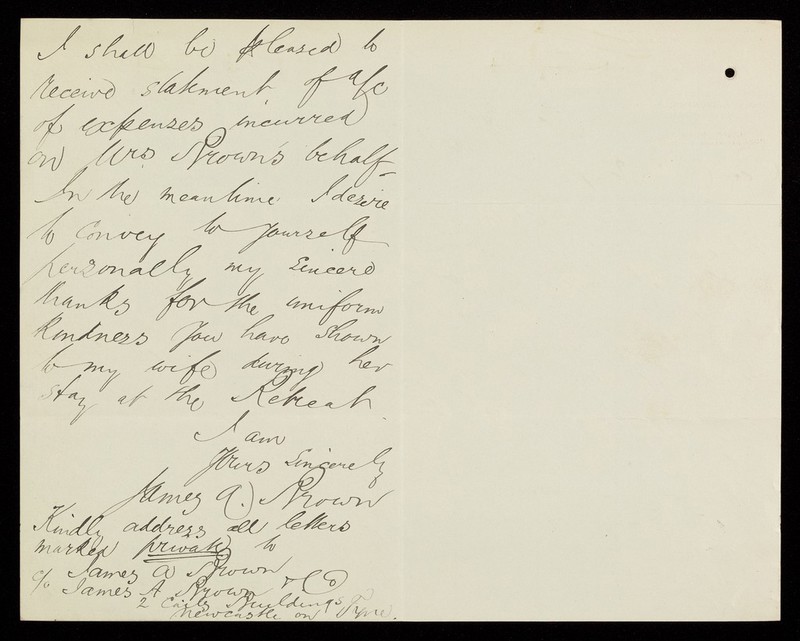 I shall be pleased to
receive statement of a/c
of expenses incurred
on Mrs Brown's behalf –
In the meantime I desire
to convey to yourself
personally my sincere
thanks for the uniform
kindness you have shown
to my wife during her
stay at the Retreat.
I am
Yours Sincerely
James A. Brown
Kindly address all letters
marked private to
James A Brown
c/o James A Brown & Co
2 Buildings
Newcastle on Tyne.